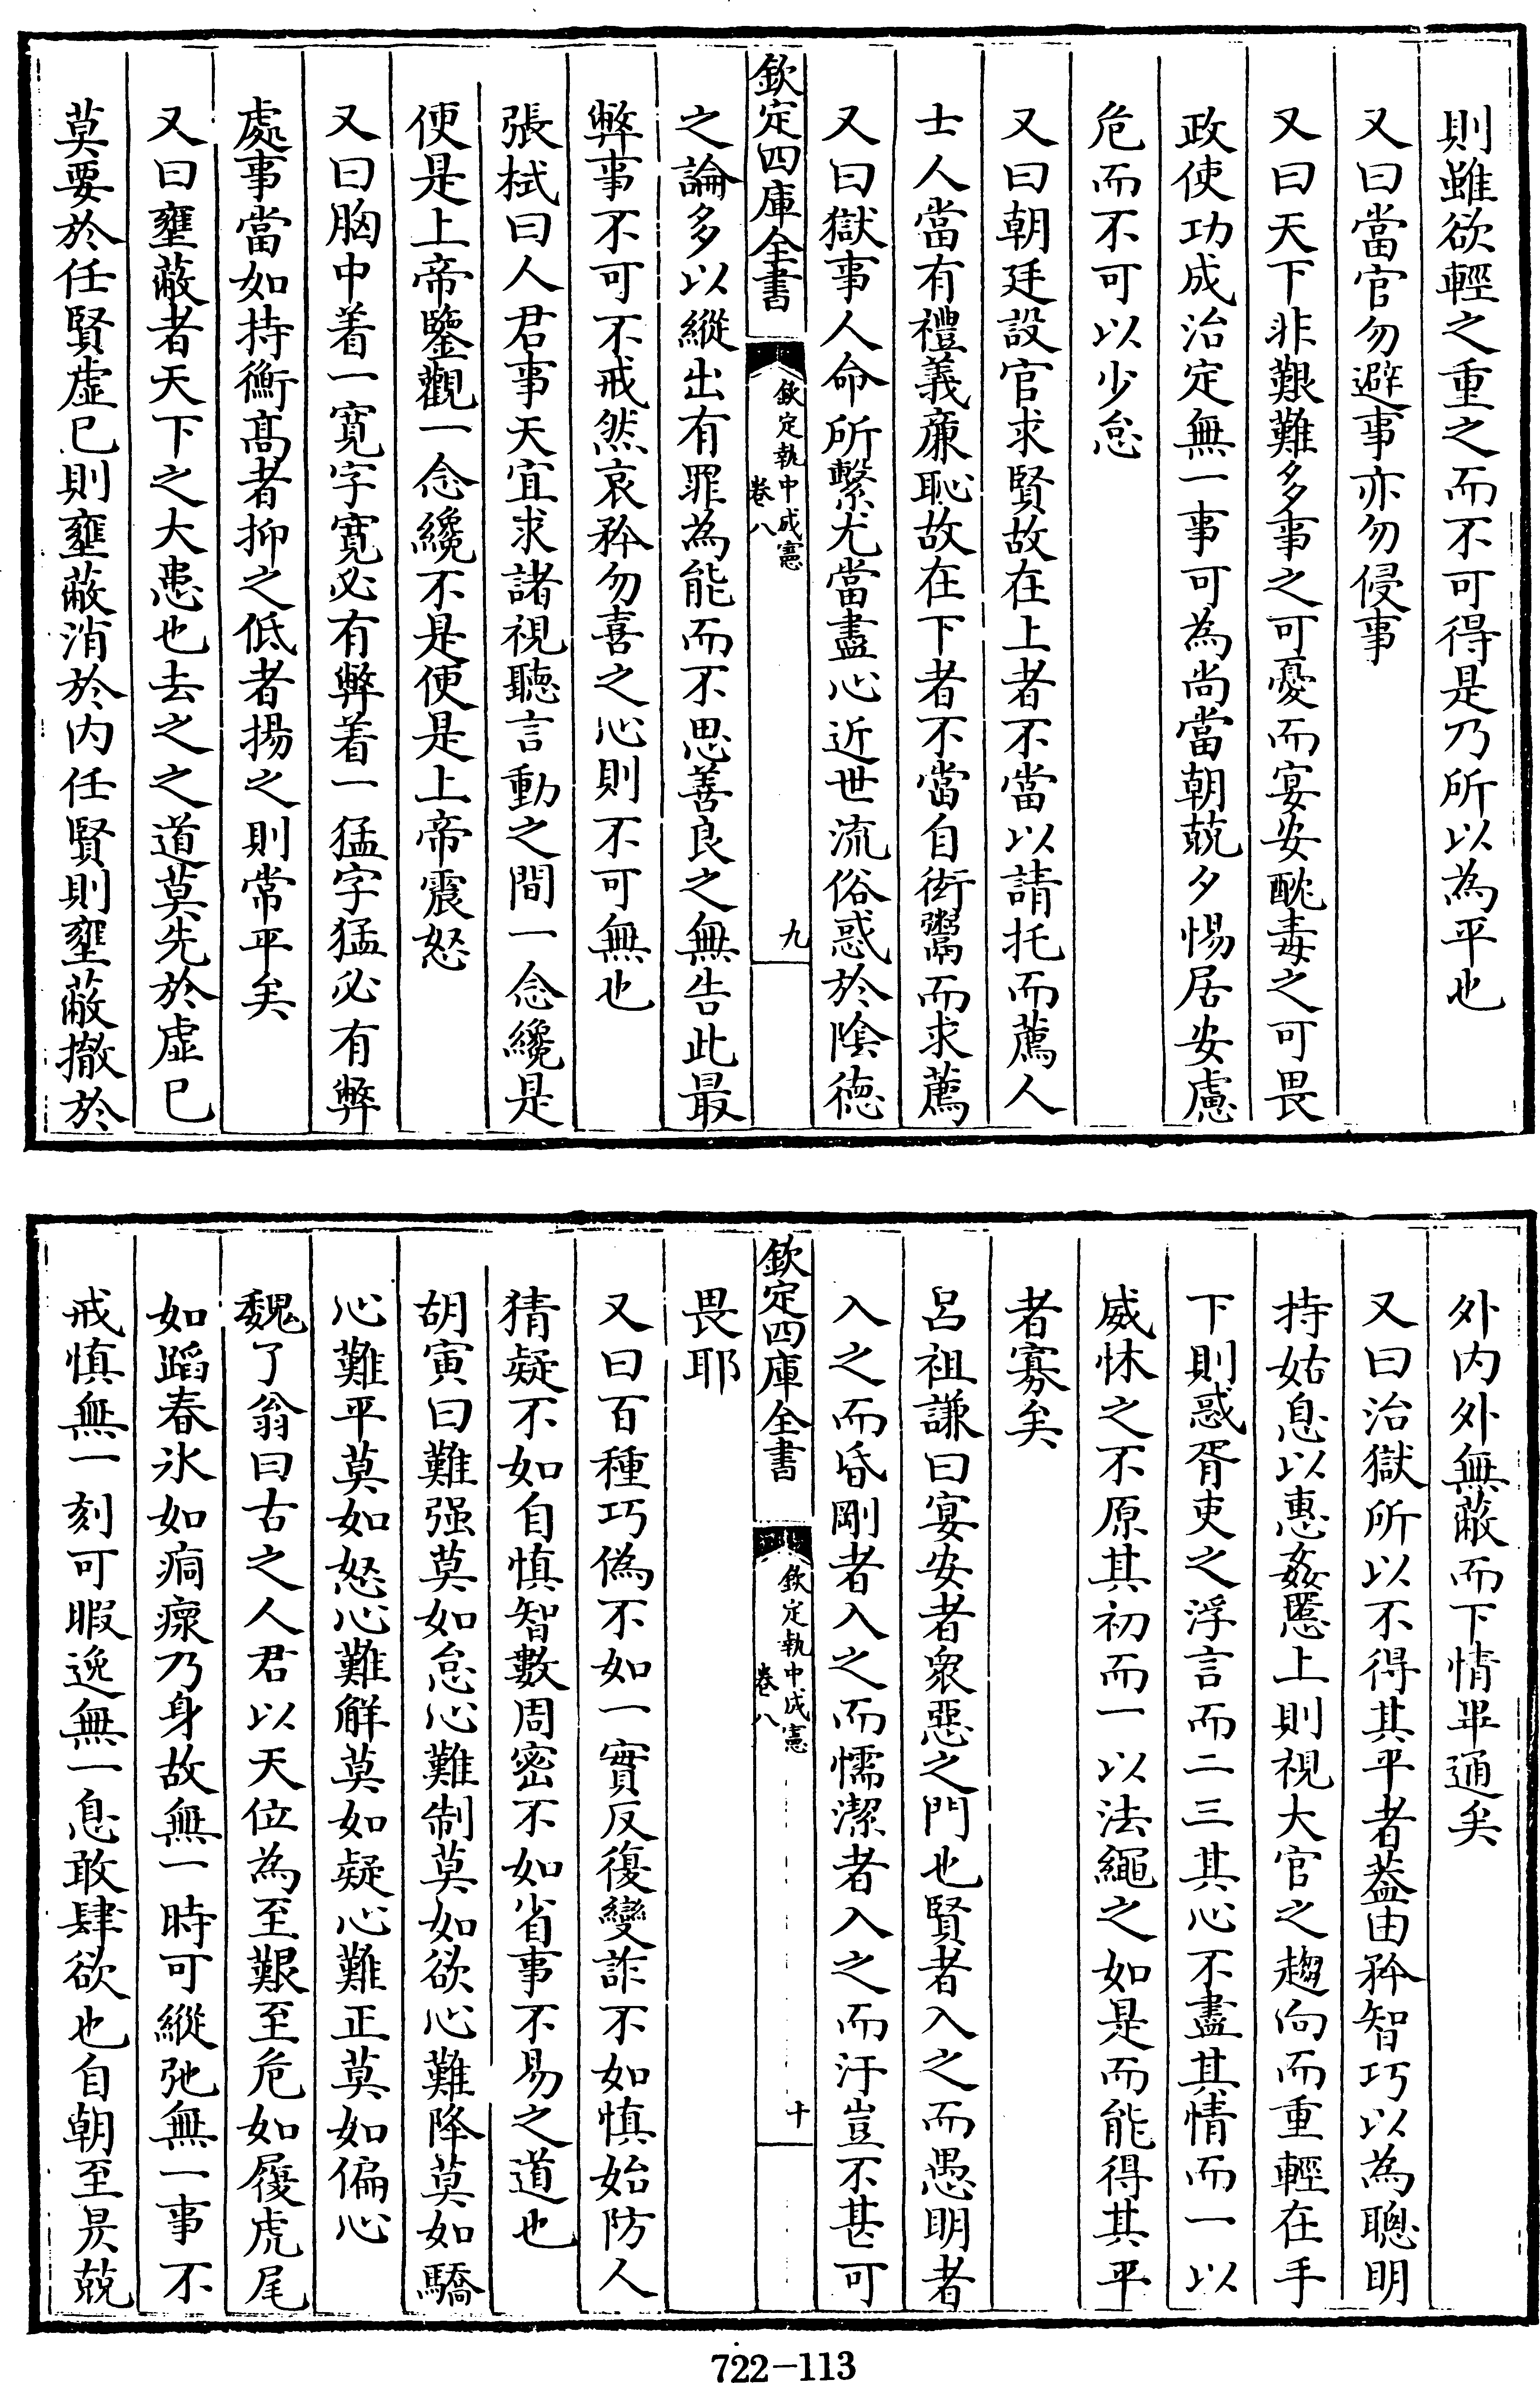 則雖欲輕之重之而不可得是乃所以為平也
又曰當官勿避事亦勿侵事
又曰天下非艱難多事之可憂而宴安酖毒之可畏
政使功成治定無一事可為尚當朝兢夕惕居安慮
危而不可以少怠
又曰朝廷設官求賢故在上者不當以請托而薦人
士人當有禮義廉恥故在下者不當自衒鬻而求薦
又曰獄事人命所繫尤當盡心近世流俗惑於陰德
欽定四庫全書
欽定執中成憲
卷八
九
之論多以縱出有罪為能而不思善良之無告此最
弊事不可不戒然哀矜勿喜之心則不可無也
張栻曰人君事天宜求諸視聽言動之間一念纔是
便是上帝鑒觀一念纔不是便是上帝震怒
又曰胸中着一寛字寛必有弊着一猛字猛必有弊
處事當如持衡髙者抑之低者揚之則常平矣
又曰壅蔽者天下之大患也去之之道莫先於虚己
莫要於任賢虚己則壅蔽消於内任賢則壅蔽撤於
外内外無蔽而下情畢通矣
又曰治獄所以不得其平者葢由矜智巧以為聰明
持姑息以惠姦慝上則視大官之趨向而重輕在手
下則惑胥吏之浮言而二三其心不盡其情而一以
威怵之不原其初而一以法繩之如是而能得其平
者寡矣
呂祖謙曰宴安者衆惡之門也賢者入之而愚明者
入之而昏剛者入之而懦潔者入之而汙豈不甚可
欽定四庫全書
欽定執中成憲
卷八
十
畏耶
又曰百種巧偽不如一實反復變詐不如慎始防人
猜疑不如自慎智數周密不如省事不易之道也
胡寅曰難强莫如怠心難制莫如欲心難降莫如驕
心難平莫如怒心難解莫如疑心難正莫如偏心
魏了翁曰古之人君以天位為至艱至危如履虎尾
如蹈春氷如痌瘝乃身故無一時可縱弛無一事不
戒慎無一刻可暇逸無一息敢肆欲也自朝至昃兢
722-113